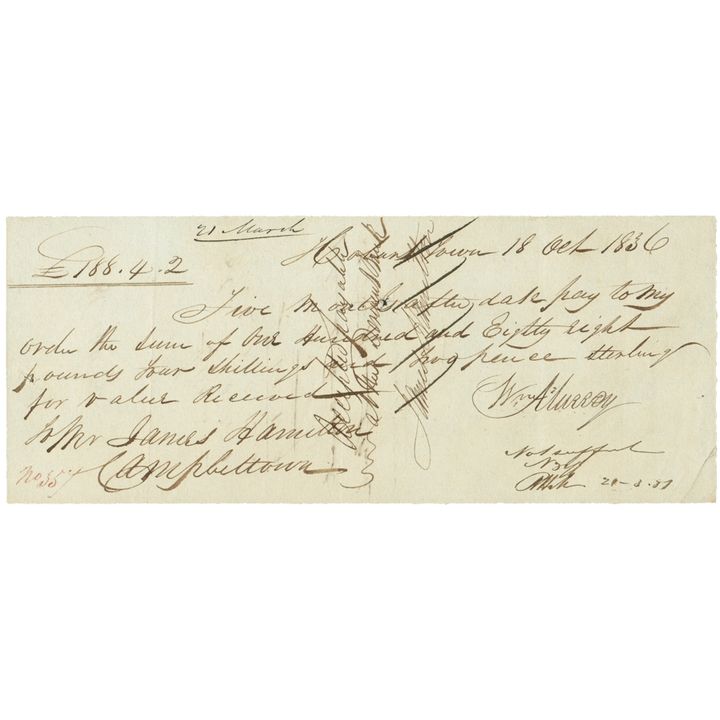 21 March
£188.4.2
Hobart Town 18 Oct 1836
Five Months after date pay to my
order the sum of One Hundred and Eighty Eight
pounds Four Shillings and Two pence sterling
for value Received
Wm Murray
To Mr James Hamilton
Campbeltown
No 357
Accepted payable
at the Bank
Not suffnt
21-3.37